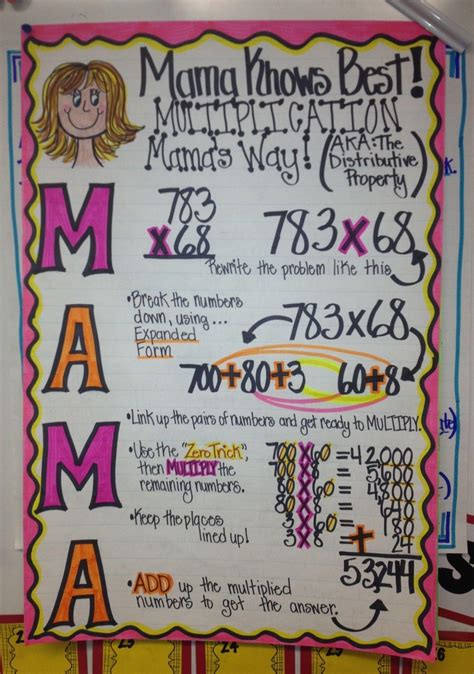 Mama Knows Best!
MULTIPLICATION
Mama's Way! (AKA: The Distributive Property)
M
783
x68
783x68
Rewrite the problem like this
A
•Break the numbers
down, using...
Expanded
Form
783x68
700+80+3 60+8
•Link up the pairs of numbers and get ready to MULTIPLY.
M
•Use the "Zero Trick",
then MULTIPLY the
remaining numbers.
•Keep the places
lined up!
700x60=42,000
700x8=5,600
80x60=4,800
80x8=640
3x60=180
3x8=24
+
53,244
A
•ADD up the multiplied
numbers to get the answer.
25
26